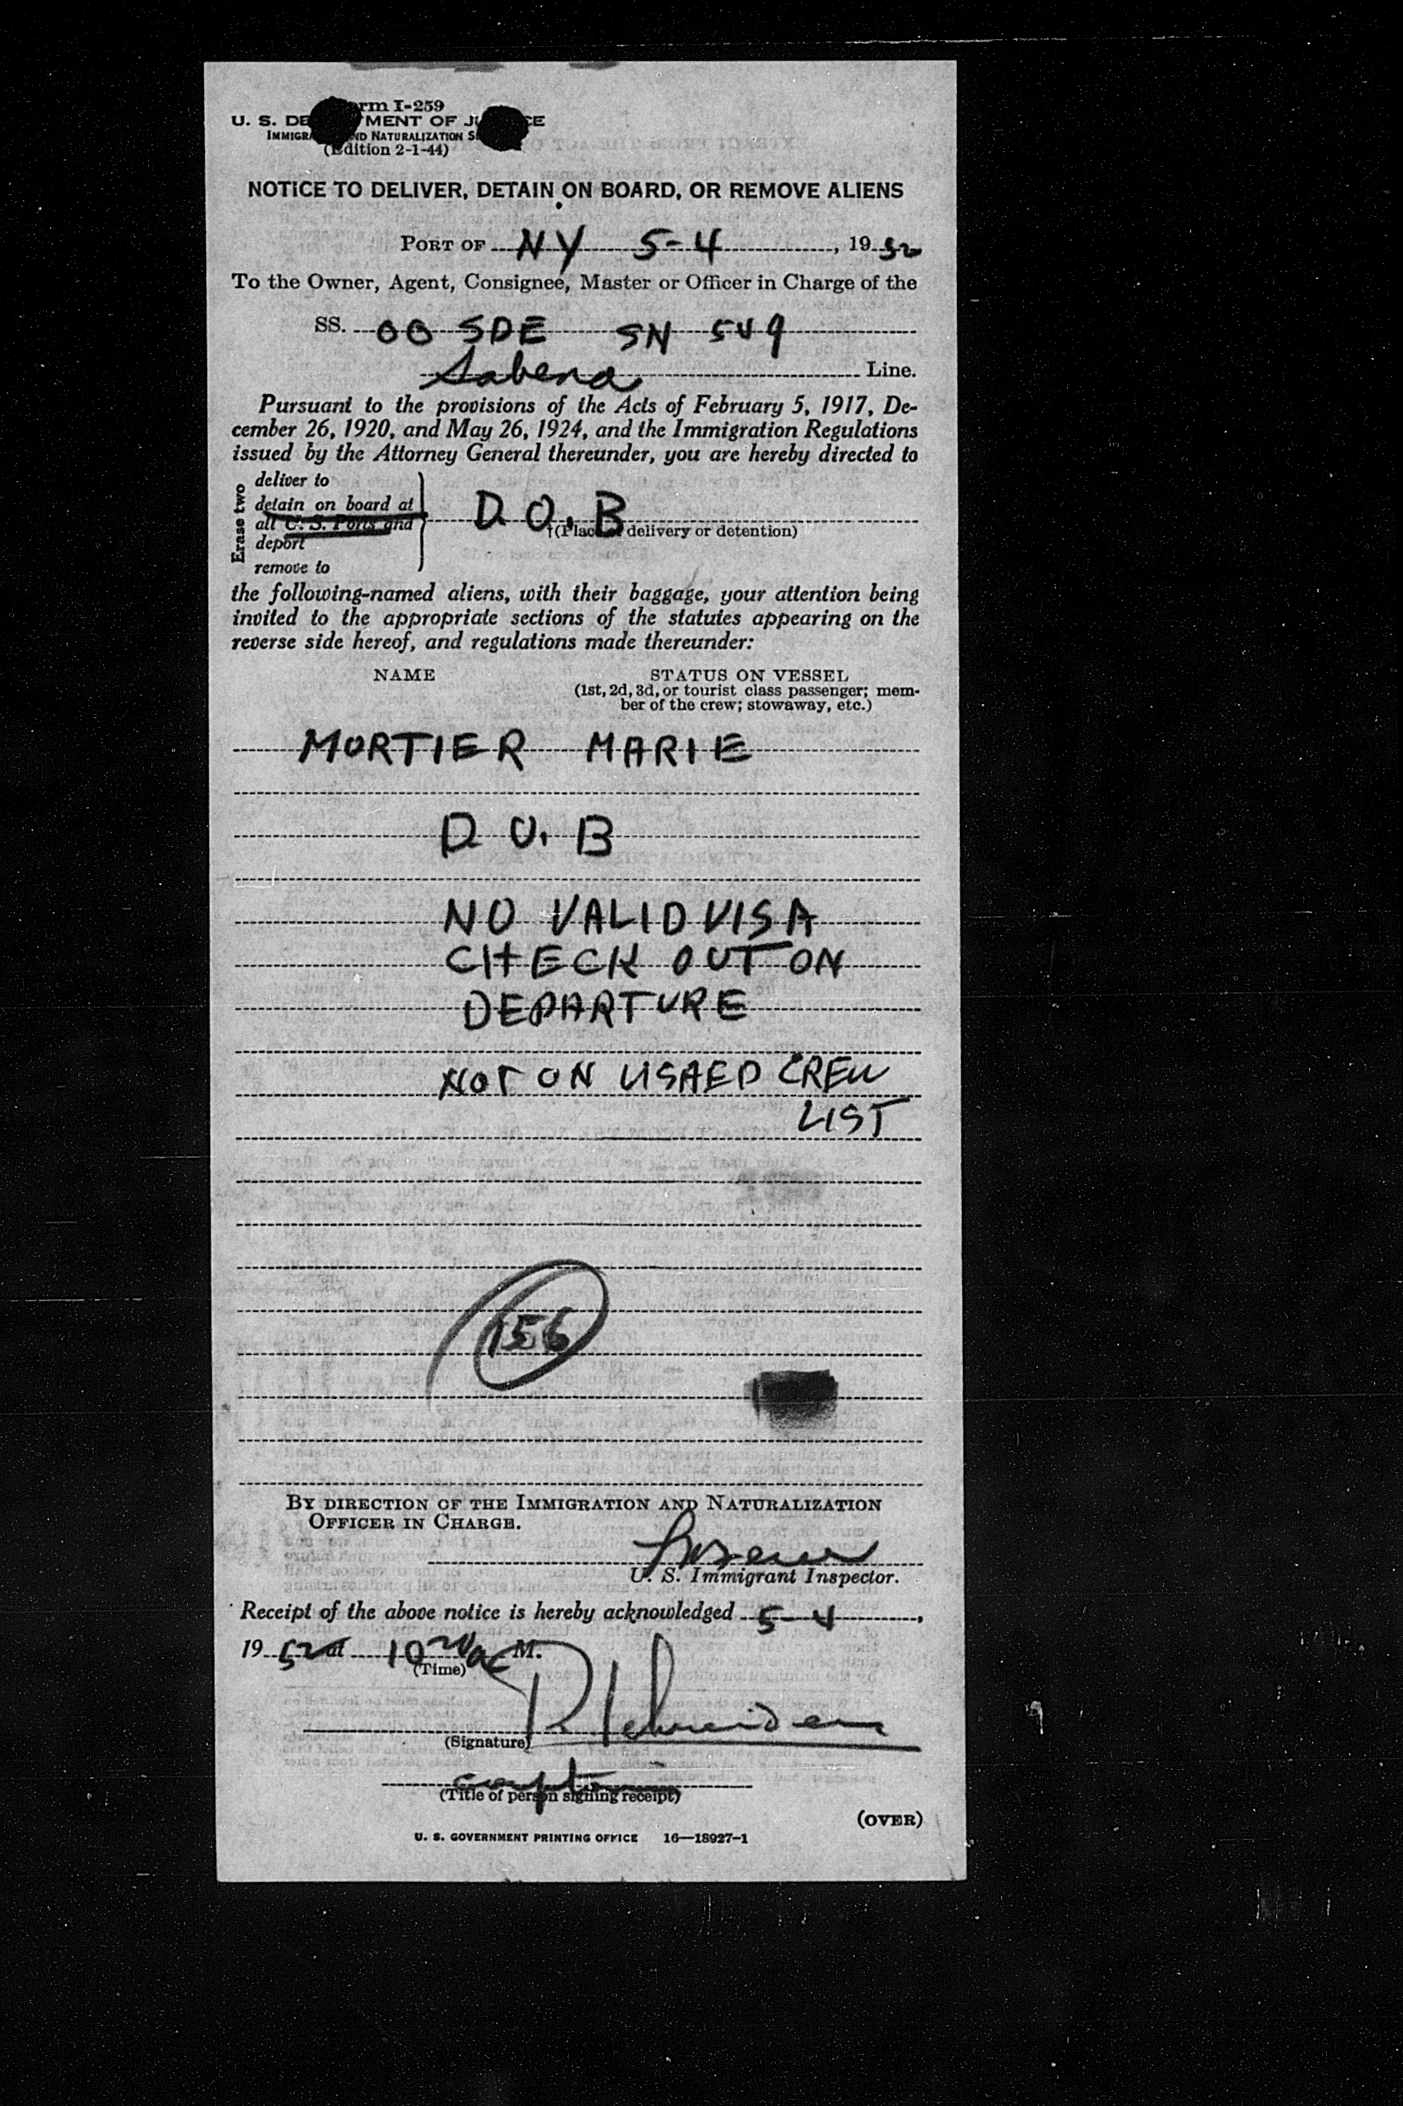 Form I-259
U. S. DEPARTMENT OF JUSTICE
IMMIGRATION AND NATURALIZATION SERVICE
(Edition 2-1-44)
NOTICE TO DELIVER, DETAIN ON BOARD, OR REMOVE ALIENS
PORT OF NY 5-4, 1952
To the Owner, Agent, Consignee, Master or Officer in Charge of the
SS. OO SDE SN 549
Sabena Line.
Pursuant to the provisions of the Acts of February 5, 1917, De-
cember 26, 1920, and May 26, 1924, and the Immigration Regulations
issued by the Attorney General thereunder, you are hereby directed to
Erase two
deliver to
detain on board at
all U. S. Ports and
deport
remove to
D. O. B
†(Place of delivery or detention)
the following-named aliens, with their baggage, your attention being
invited to the appropriate sections of the statutes appearing on the
reverse side hereof, and regulations made thereunder:
NAME STATUS ON VESSEL
(1st, 2d, 3d, or tourist class passenger; mem-
ber of the crew; stowaway, etc.)
MORTIER MARIE
D. O. B
NO VALID VISA
CHECK OUT ON
DEPARTURE
NOT ON VISAED CREW
LIST
156
BY DIRECTION OF THE IMMIGRATION AND NATURALIZATION
OFFICER IN CHARGE.
U. S. Immigrant Inspector.
Receipt of the above notice is hereby acknowledged 5-4,
1952 at 10 20 a M.
(Time)
(Signature)
captain
(Title of person signing receipt)
(OVER)
U. S. GOVERNMENT PRINTING OFFICE 16—18927-1